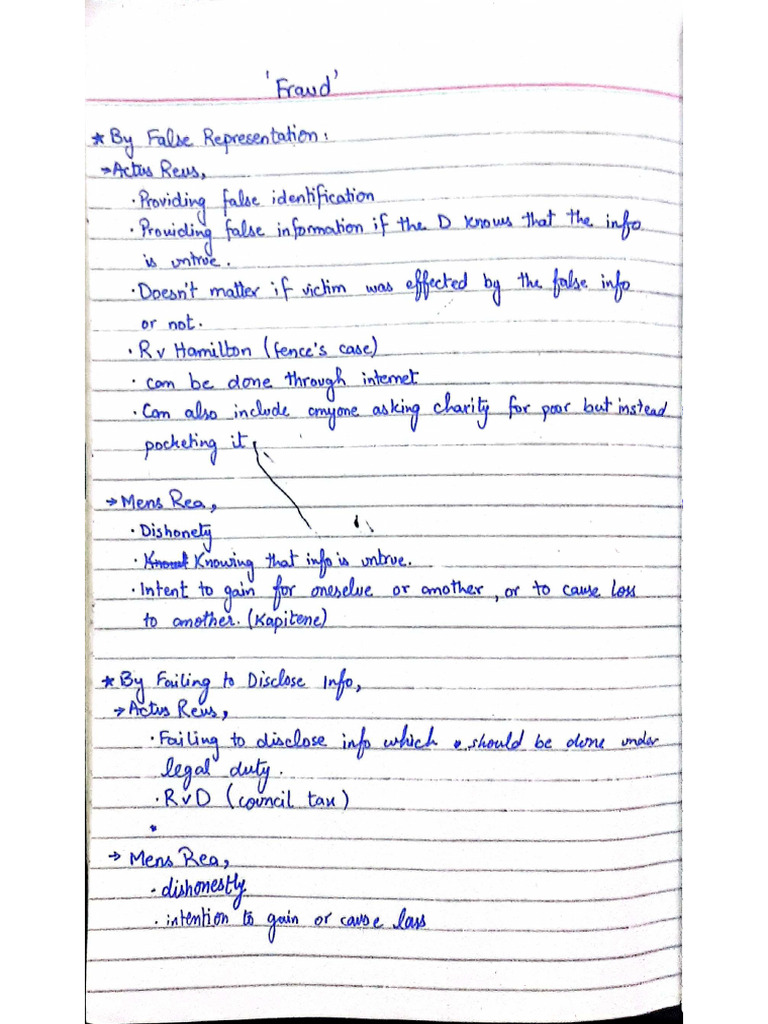 'Fraud'
* By False Representation:
→ Actus Reus,
· Providing false identification
· Providing false information if the D knows that the info
is untrue.
· Doesn't matter if victim was effected by the false info
or not.
· R v Hamilton (fence's case)
· can be done through internet
· Can also include anyone asking charity for poor but instead
pocketing it.
→ Mens Rea,
· Dishonety
· Knowing that info is untrue.
· Intent to gain for oneselve or another, or to cause loss
to another. (Kapitene)
* By Failing to Disclose Info,
→ Actus Reus,
· Failing to disclose info which should be done under
legal duty.
· R v D (council tax)
→ Mens Rea,
· dishonestly
· intention to gain or cause loss